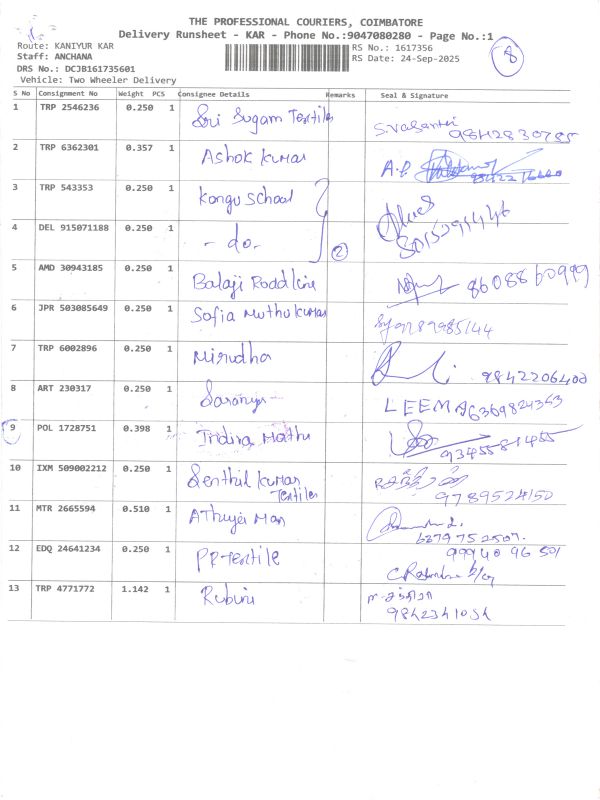 THE PROFESSIONAL COURIERS, COIMBATORE
Delivery Runsheet - KAR - Phone No.:9047080280 - Page No.:1
Route: KANIYUR KAR
RS No.: 1617356
8
Staff: ANCHANA
RS Date: 24-Sep-2025
DRS No.: DCJB161735601
Vehicle: Two Wheeler Delivery
S No Consignment No Weight PCS Consignee Details Remarks Seal & Signature
1 TRP 2546236 0.250 1 Sri Sugam Textiles S.Vasanthi
9842830785
2 TRP 6362301 0.357 1 Ashok Kumar A.P
3 TRP 543353 0.250 1 Kongu School
4 DEL 915071188 0.250 1 - do - 2
5 AMD 30943185 0.250 1 Balaji Roadline 8608860999
6 JPR 503085649 0.250 1 Sofia Muthukumar
9789985144
7 TRP 6002896 0.250 1 Mirudha
9842206400
8 ART 230317 0.250 1 Saranya LEEMA 6369824363
9 POL 1728751 0.398 1 Indira Mathu
9345581455
10 IXM 509002212 0.250 1 Senthil Kumar
Textiles
9789524150
11 MTR 2665594 0.510 1
6379752507
12 EDQ 24641234 0.250 1 PR Textile 99940 96 501
13 TRP 4771772 1.142 1 Rubini
9842341054